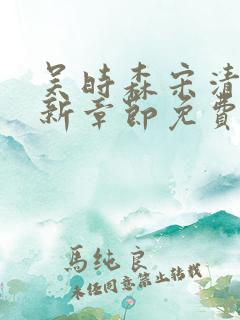 吴时森宋清
新章節免費
馬純良
未经同意禁止转载